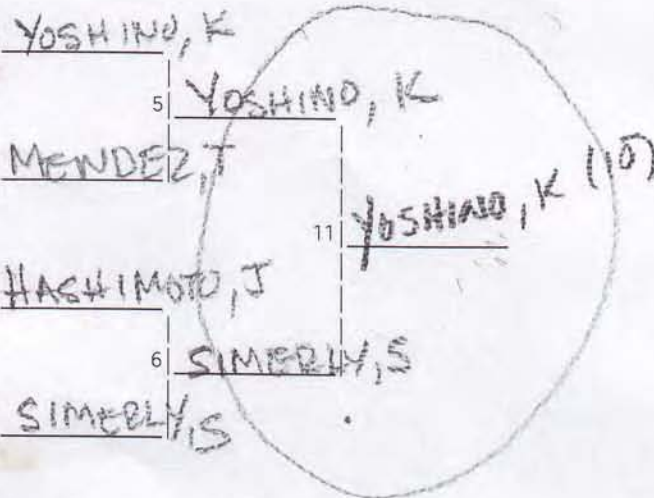 YOSHINO, K
5 YOSHINO, K
MENDEZ, T
11 YOSHINO, K (10)
HASHIMOTO, J
6 SIMERLY, S
SIMERLY, S